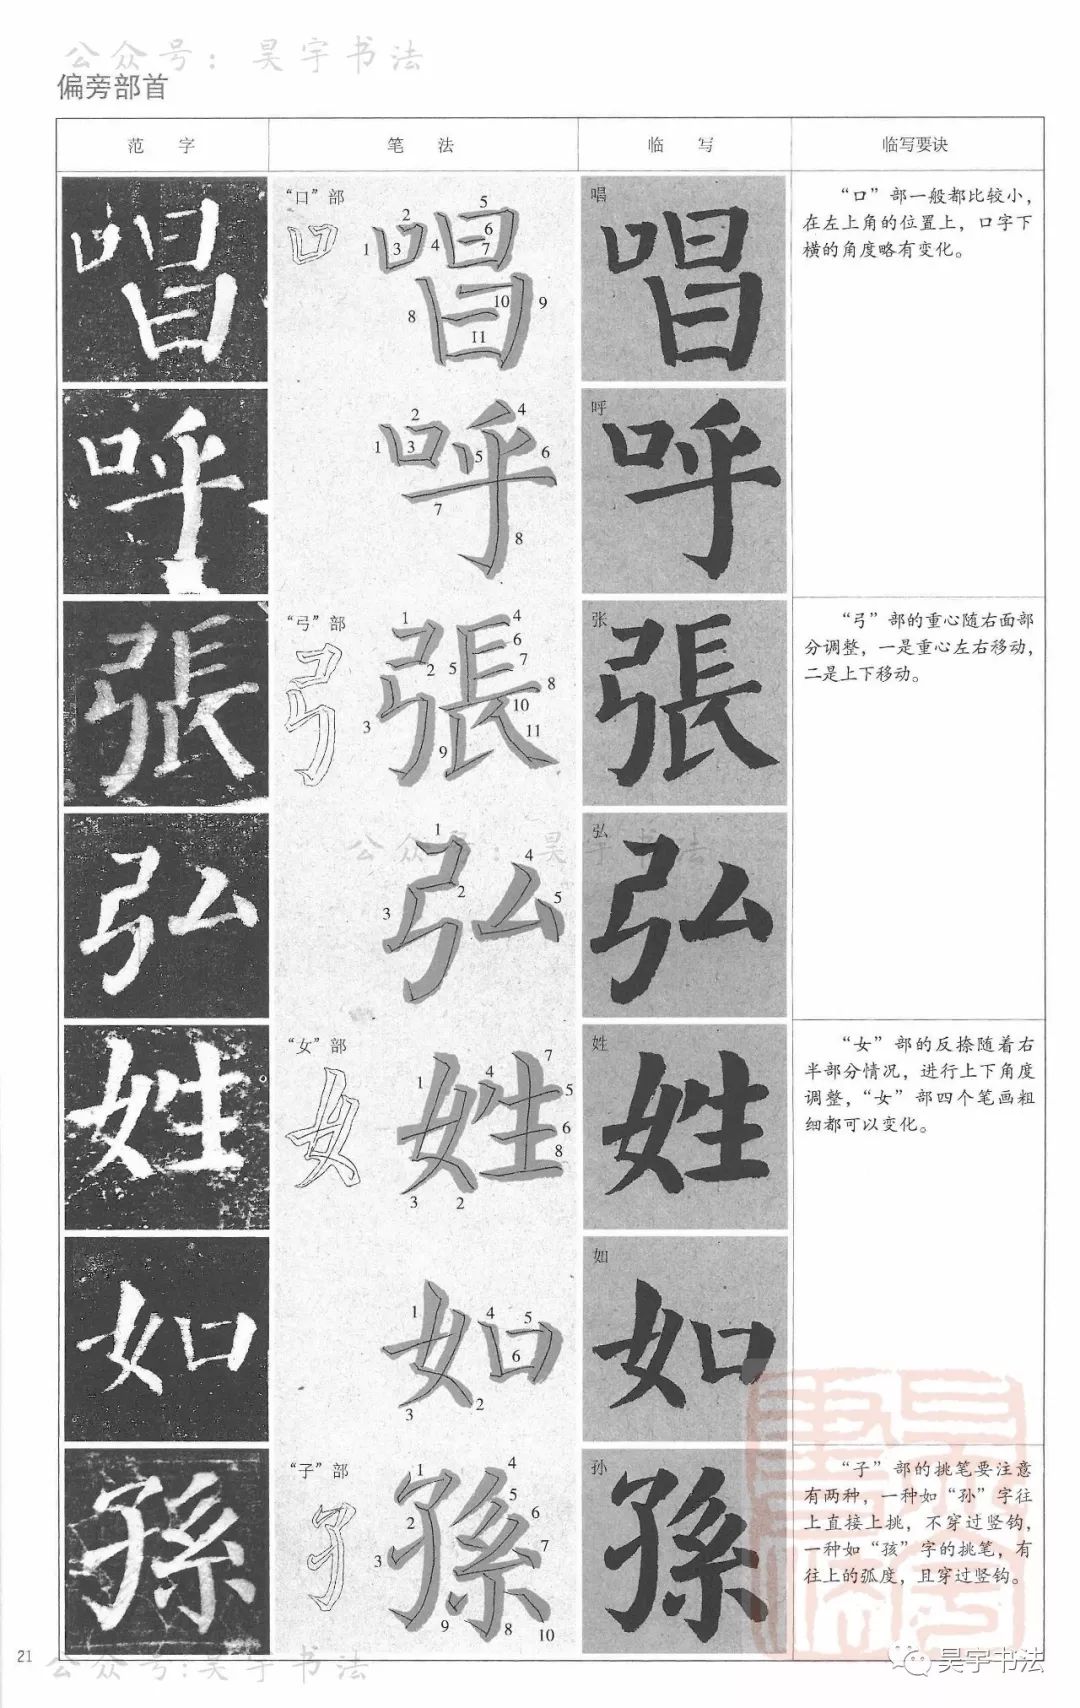 公众号：昊宇书法
偏旁部首
范 字
笔 法
临 写
临写要诀
唱
“口”部
1 2 3 4 5 6 7 8 9 10 11
唱
唱
唱
“口”部一般都比较小，
在左上角的位置上，口字下
横的角度略有变化。
呼
1 2 3 4 5 6 7 8
呼
呼
呼
張
“弓”部
1 2 3 4 5 6 7 8 9 10 11
張
张
張
“弓”部的重心随右面部
分调整，一是重心左右移动，
二是上下移动。
弘
1 2 3 4 5
弘
弘
弘
公众号：昊宇书法
姓
“女”部
1 2 3 4 5 6 7 8
姓
姓
姓
“女”部的反捺随着右
半部分情况，进行上下角度
调整，“女”部四个笔画粗
细都可以变化。
如
1 2 3 4 5 6
如
如
如
孫
“子”部
1 2 3 4 5 6 7 8 9 10
孫
孙
孫
“子”部的挑笔要注意
有两种，一种如“孙”字往
上直接上挑，不穿过竖钩，
一种如“孩”字的挑笔，有
往上的弧度，且穿过竖钩。
21
公众号：昊宇书法
昊宇书法